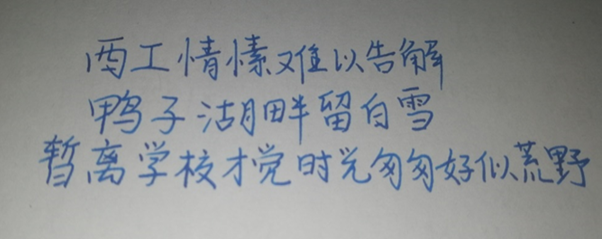 西工情愫难以告解
鸭子湖畔留白雪
暂离学校才觉时光匆匆好似荒野